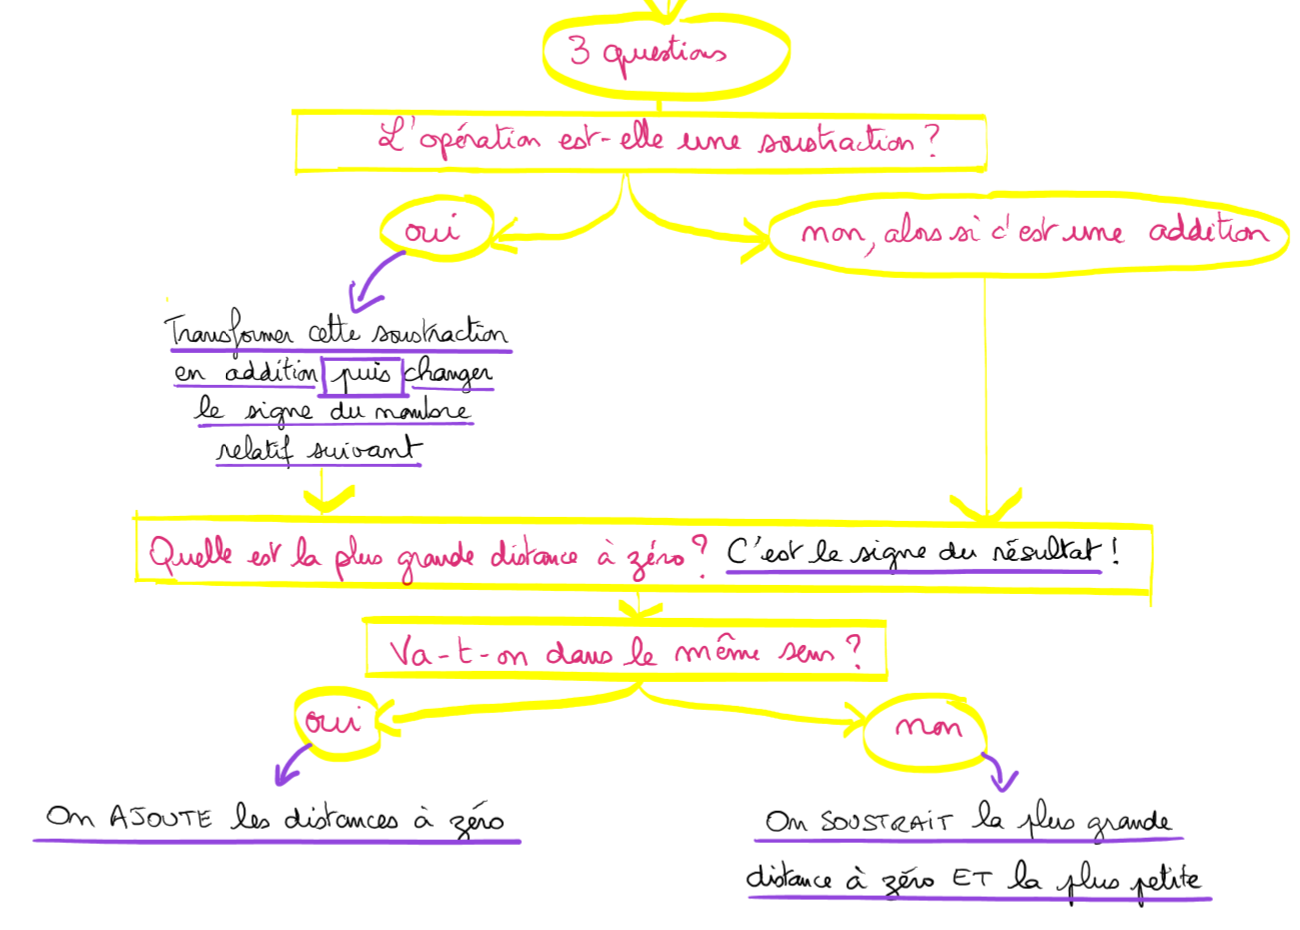 3 questions
L'opération est-elle une soustraction ?
oui
non, alors si c'est une addition
Transformer cette soustraction
en addition puis changer
le signe du nombre
relatif suivant
Quelle est la plus grande distance à zéro ? C'est le signe du résultat !
Va-t-on dans le même sens ?
oui
non
On AJOUTE les distances à zéro
On SOUSTRAIT la plus grande
distance à zéro ET la plus petite